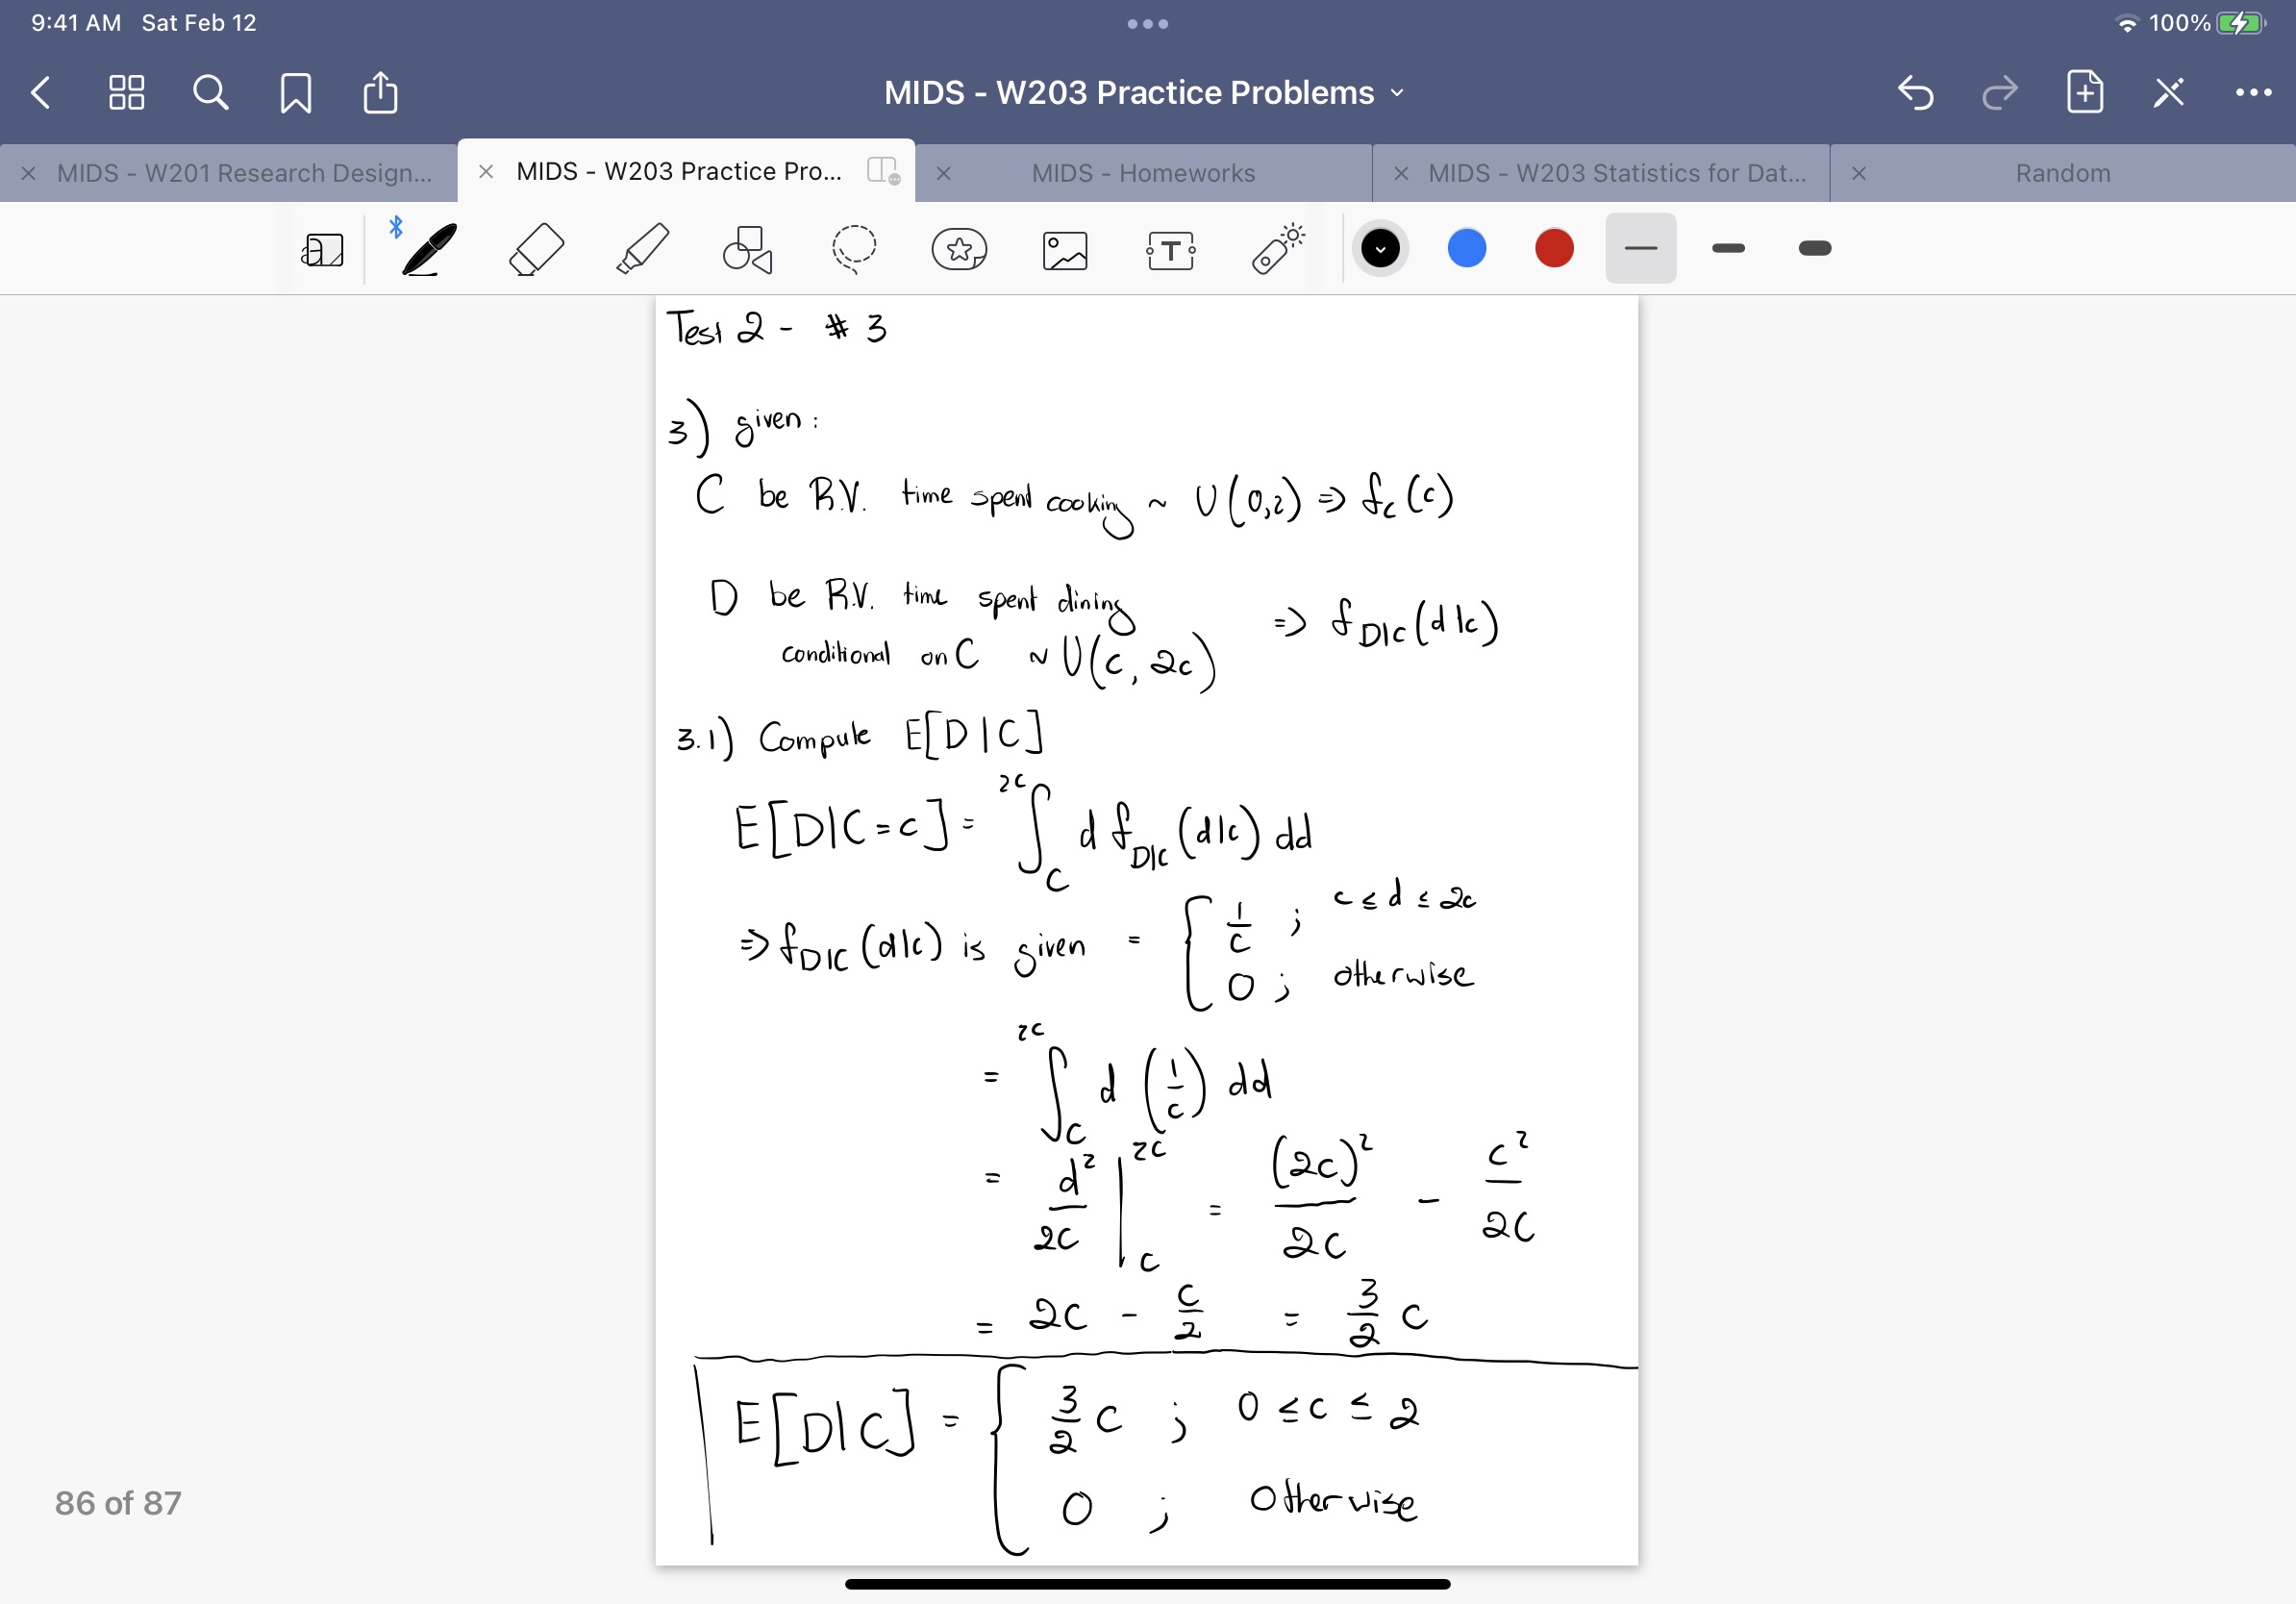 9:41 AM Sat Feb 12
100%
MIDS - W203 Practice Problems
MIDS - W201 Research Design...
MIDS - W203 Practice Pro...
MIDS - Homeworks
MIDS - W203 Statistics for Dat...
Random
a
T
Test 2 - # 3
3) given:
C be R.V. time spent cooking ~ U(0,2) ⇒ f_C(c)
D be R.V. time spent dining
conditional on C ~ U(c, 2c) ⇒ f_D|C(d|c)
3.1) Compute E[D|C]
E[D|C=c] = ∫_C^2C d f_D|C(d|c) dd
⇒ f_D|C(d|c) is given = { 1/c ; c ≤ d ≤ 2c
0 ; otherwise
= ∫_C^2C d (1/c) dd
= d²/2C |_C^2C = (2C)²/2C - C²/2C
= 2C - C/2 = 3/2 C
E[D|C] = { 3/2 C ; 0 ≤ c ≤ 2
0 ; Otherwise
86 of 87